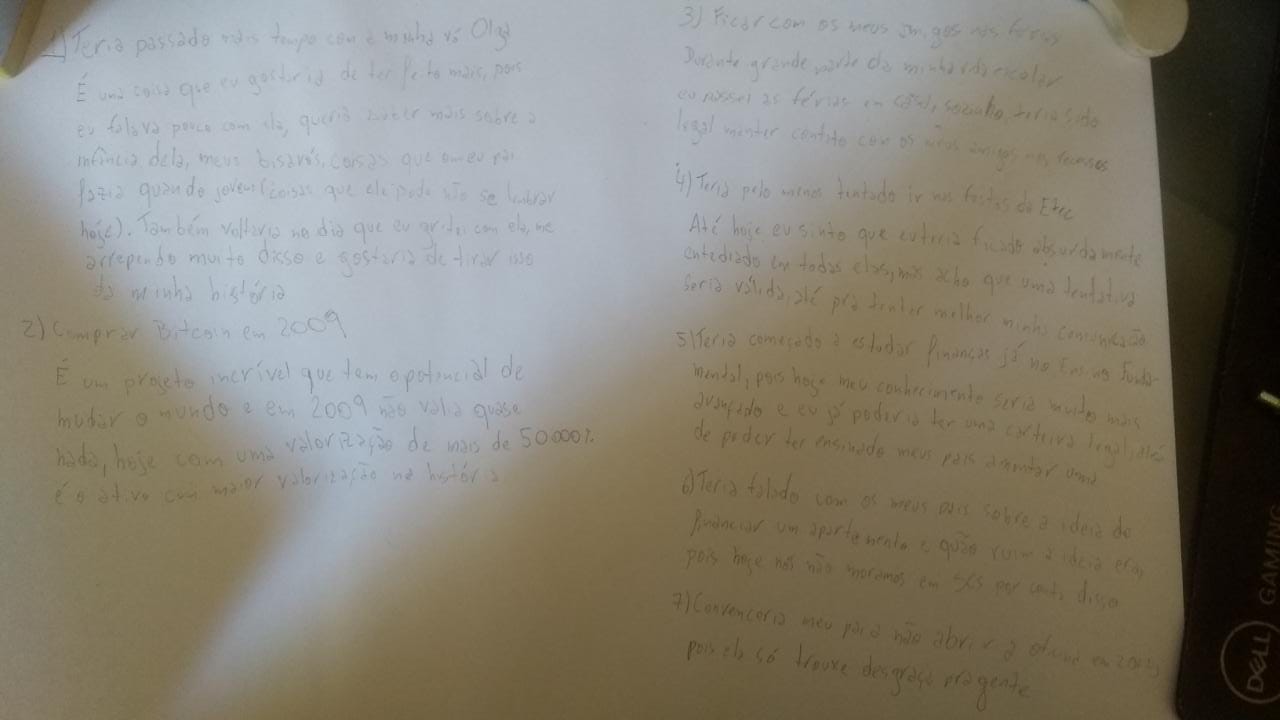 1) Teria passado mais tempo com a minha vó Olga
É uma coisa que eu gostaria de ter feito mais, pois
eu falava pouco com ela, queria saber mais sobre a
infância dela, meus bisavós, coisas que o meu pai
fazia quando jovem (coisas que ele pode não se lembrar
hoje). Também voltaria no dia que eu gritei com ela, me
arrependo muito disso e gostaria de tirar isso
da minha história
2) Comprar Bitcoin em 2009
É um projeto incrível que tem o potencial de
mudar o mundo e em 2009 não valia quase
nada, hoje com uma valorização de mais de 50000%
é o ativo com maior valorização na história
3) Ficar com os meus amigos nas férias
Durante grande parte da minha vida escolar
eu passei as férias em casa, sozinho, teria sido
legal manter contato com os meus amigos nos recessos
4) Teria pelo menos tentado ir nas festas da Etec
Até hoje eu sinto que eu teria ficado absurdamente
entediado em todas elas, mas acho que uma tentativa
seria válida, até pra tentar melhor minha comunicação
5) Teria começado a estudar finanças já no Ensino Funda-
mental, pois hoje meu conhecimento seria muito mais
avançado e eu já poderia ter uma carteira legal, além
de poder ter ensinado meus pais a montar uma
6) Teria falado com os meus pais sobre a ideia de
financiar um apartamento e quão ruim a ideia era,
pois hoje nós não moramos em SCS por conta disso
7) Convenceria meu pai a não abrir a em
pois ela só trouxe desgraça pra gente
DELL
GAMING